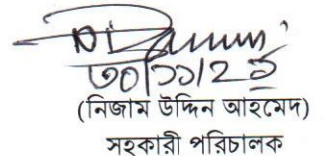 ৩০/১১/২১
(নিজাম উদ্দিন আহমেদ)
সহকারী পরিচালক